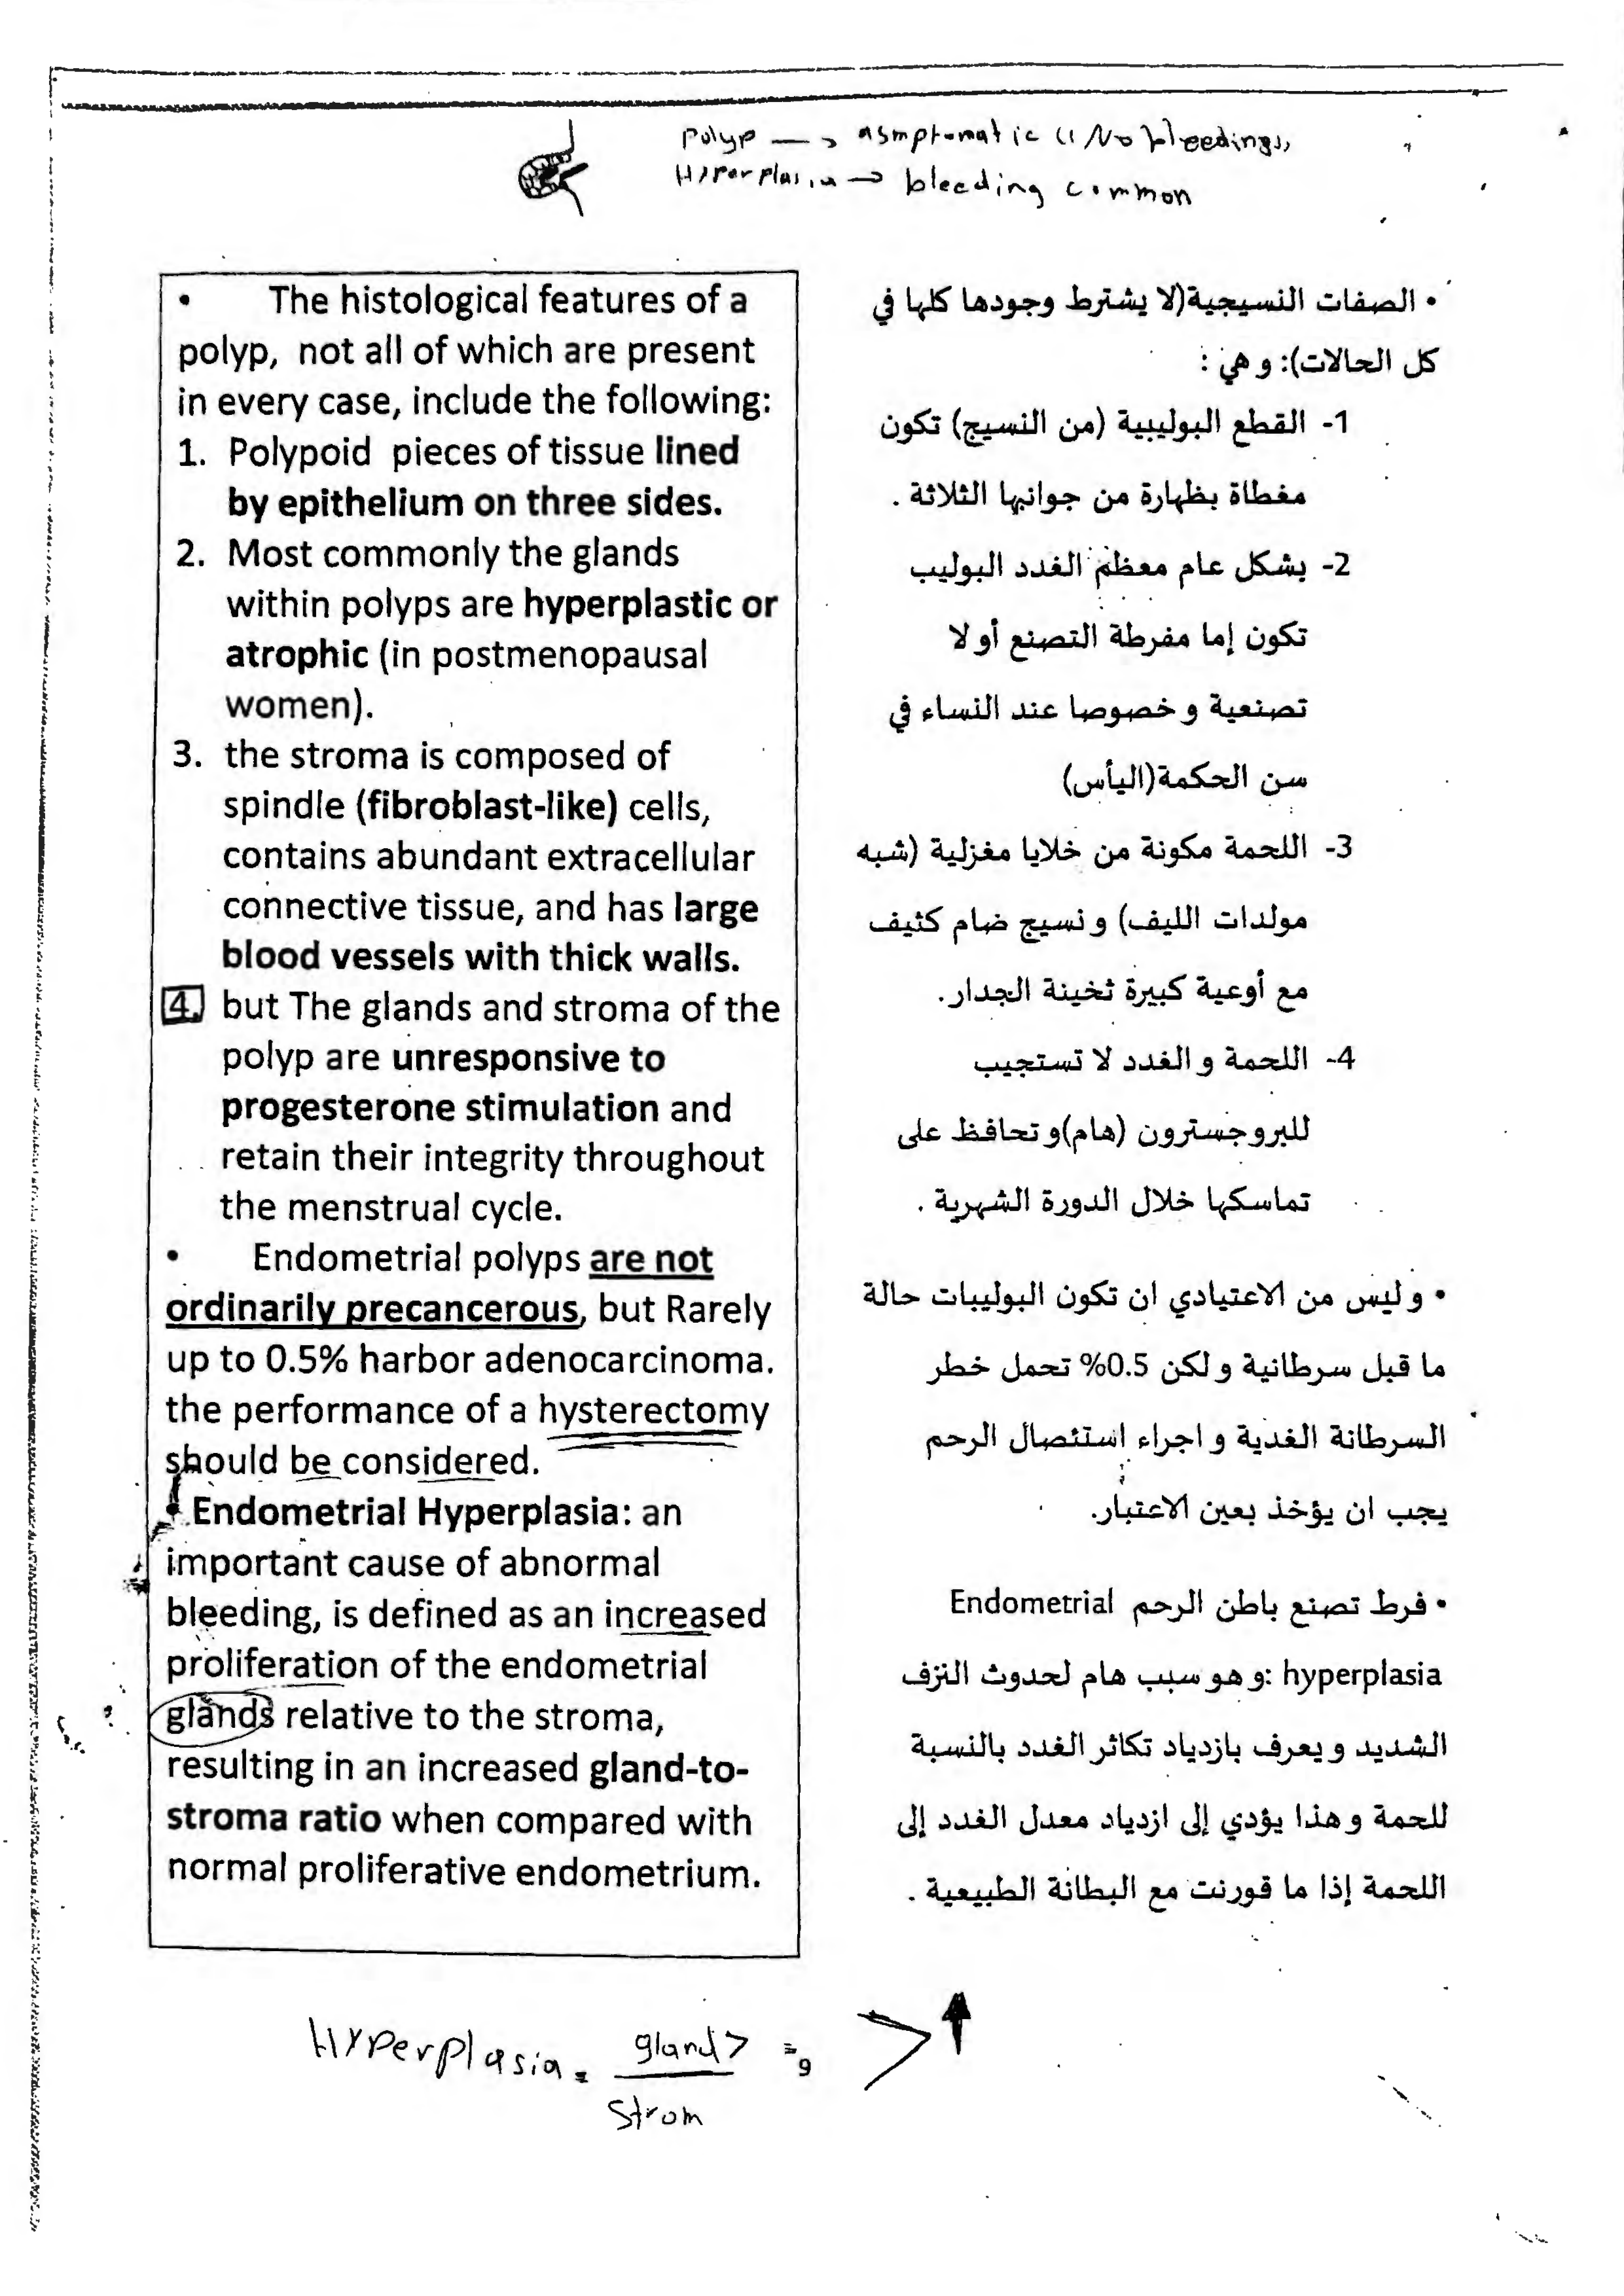 Polyp → asmptomatic (( No bleedings ))
Hyperplasia → bleeding common
• The histological features of a
polyp, not all of which are present
in every case, include the following:
1. Polypoid pieces of tissue lined
by epithelium on three sides.
2. Most commonly the glands
within polyps are hyperplastic or
atrophic (in postmenopausal
women).
3. the stroma is composed of
spindle (fibroblast-like) cells,
contains abundant extracellular
connective tissue, and has large
blood vessels with thick walls.
4. but The glands and stroma of the
polyp are unresponsive to
progesterone stimulation and
retain their integrity throughout
the menstrual cycle.
• Endometrial polyps are not
ordinarily precancerous, but Rarely
up to 0.5% harbor adenocarcinoma.
the performance of a hysterectomy
should be considered.
• Endometrial Hyperplasia: an
important cause of abnormal
bleeding, is defined as an increased
proliferation of the endometrial
glands relative to the stroma,
resulting in an increased gland-to-
stroma ratio when compared with
normal proliferative endometrium.
• الصفات النسيجية(لا يشترط وجودها كلها في
كل الحالات): و هي :
1- القطع البوليبية (من النسيج) تكون
مغطاة بظهارة من جوانبها الثلاثة .
2- بشكل عام معظم الغدد البوليب
تكون إما مفرطة التصنع أو لا
تصنعية و خصوصا عند النساء في
سن الحكمة(اليأس)
3- اللحمة مكونة من خلايا مغزلية (شبه
مولدات الليف) و نسيج ضام كثيف
مع أوعية كبيرة ثخينة الجدار.
4- اللحمة و الغدد لا تستجيب
للبروجسترون (هام)و تحافظ على
تماسكها خلال الدورة الشهرية .
• و ليس من الاعتيادي ان تكون البوليبات حالة
ما قبل سرطانية و لكن 0.5% تحمل خطر
السرطانة الغدية و اجراء استئصال الرحم
يجب ان يؤخذ بعين الاعتبار.
• فرط تصنع باطن الرحم Endometrial
hyperplasia :و هو سبب هام لحدوث النزف
الشديد و يعرف بازدياد تكاثر الغدد بالنسبة
للحمة و هذا يؤدي إلى ازدياد معدل الغدد إلى
اللحمة إذا ما قورنت مع البطانة الطبيعية .
Hyperplasia = gland> = > ↑
Strom
9